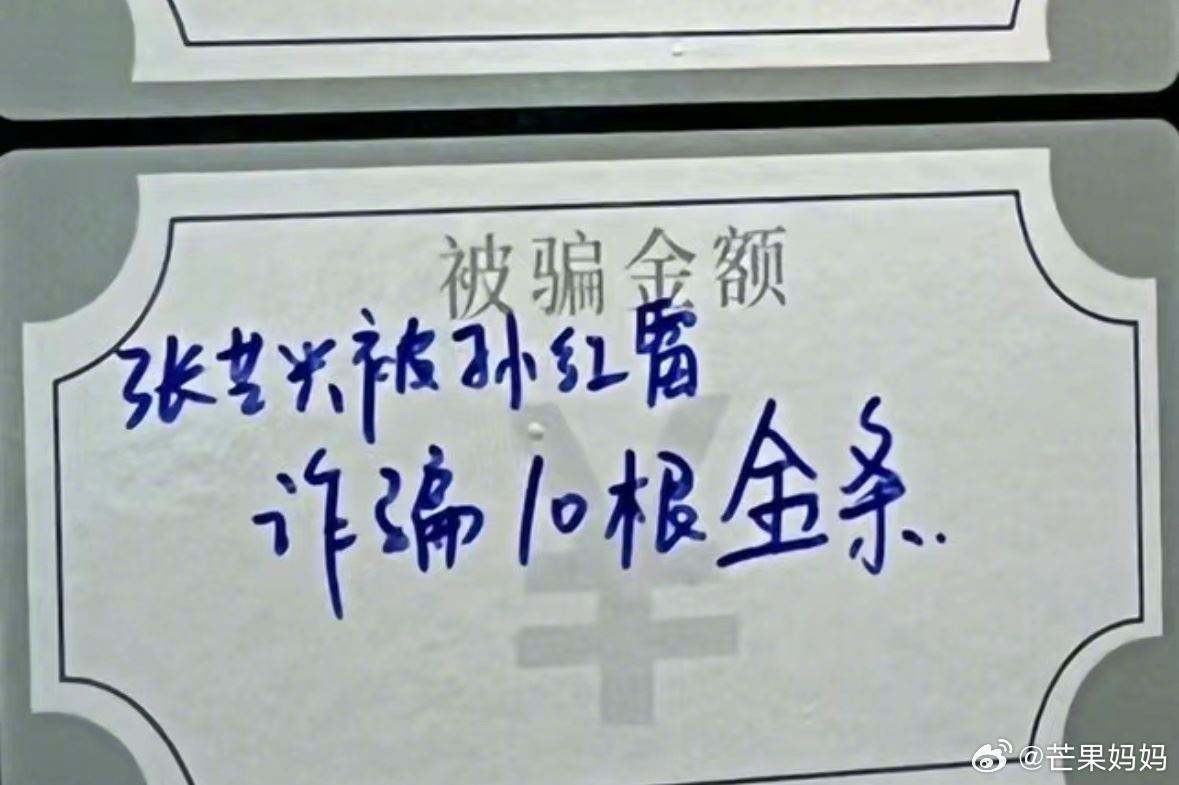 被骗金额
张艺兴被孙红雷
诈骗10根金条..
¥
@芒果妈妈